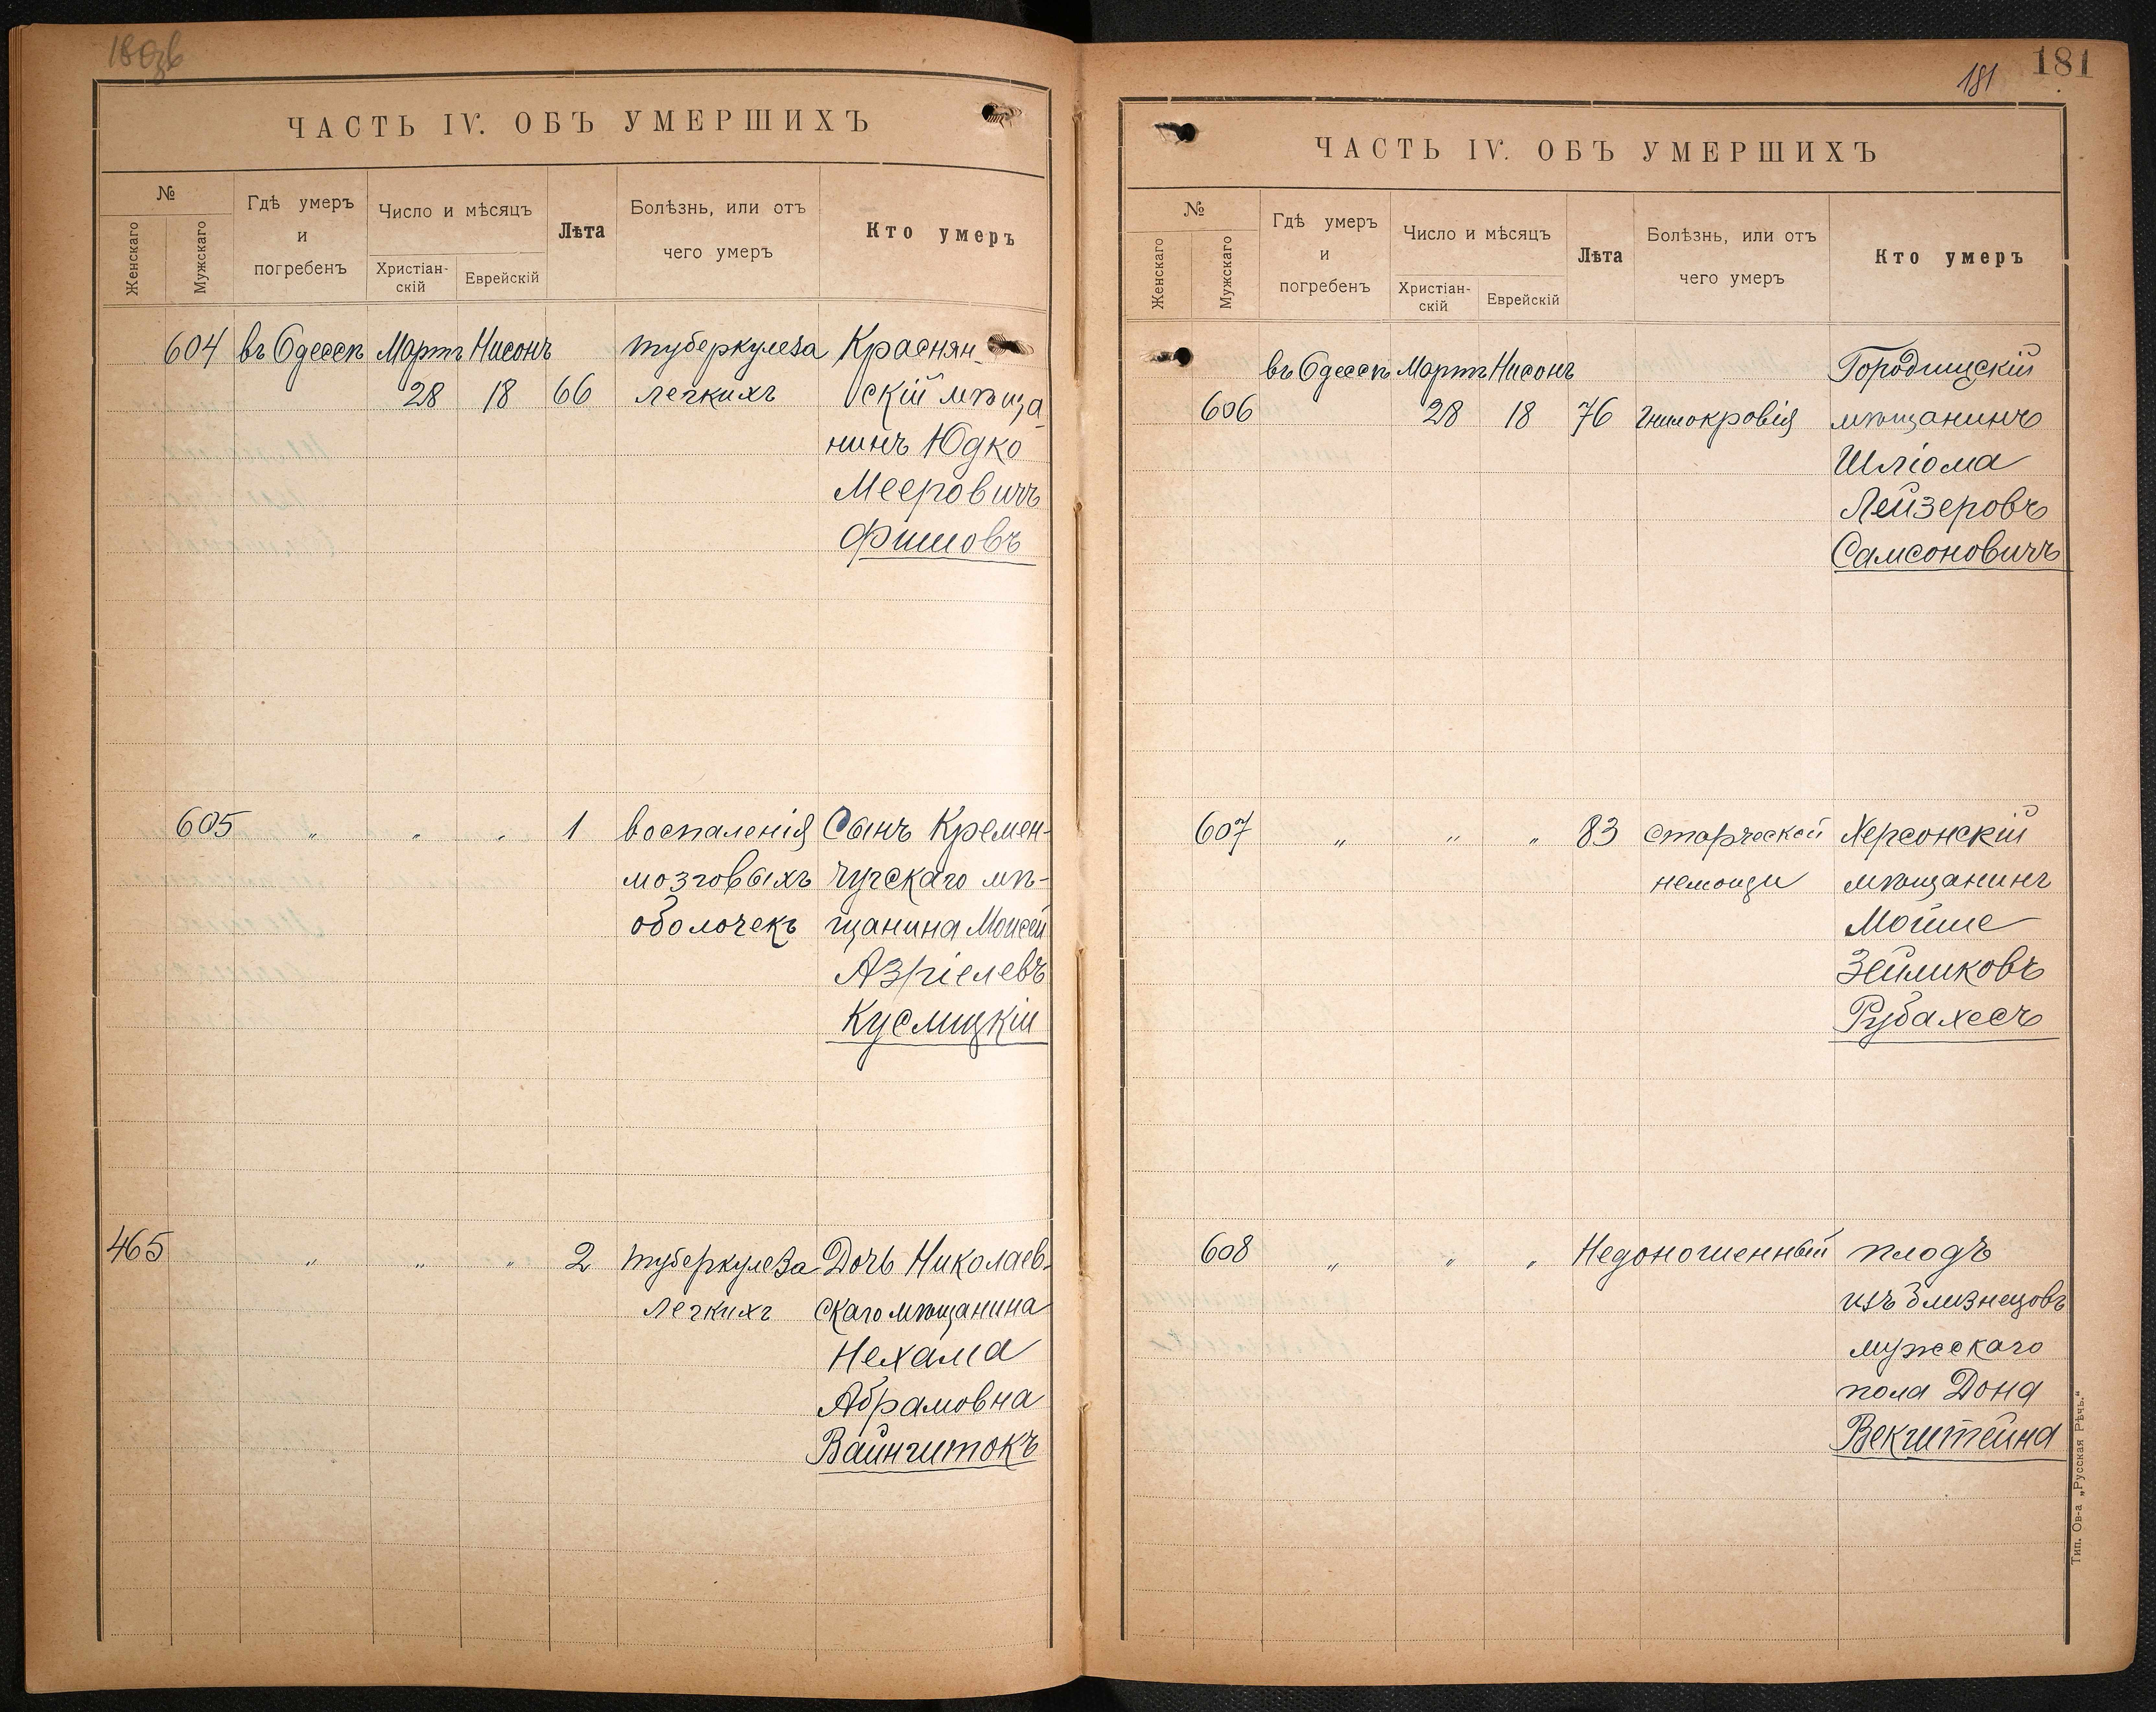 ЧАСТЬ IV. ОБЪ УМЕРШИХЪ
№
Женскаго
Мужскаго
Гдѣ умеръ
и
погребенъ
Число и мѣсяцъ
Христіан-
скій
Еврейскій
Лѣта
Болѣзнь, или отъ
чего умеръ
Кто умеръ
604 въ Одессѣ Мартъ Нисонъ туберкулеза Краснян-
28 18 66 легкихъ скій мѣща-
нинъ Юдко
Мееровичъ
Фишовъ
605 " " " 1 воспаленія Сынъ Кремен-
мозговыхъ чугскаго мѣ-
оболочекъ щанина Моисей
Азріелевъ
Кусмицкій
465 " " " 2 туберкулеза Дочь Николаев-
легкихъ скаго мѣщанина
Нехама
Абрамовна
Вайнштокъ
181
181
ЧАСТЬ IV. ОБЪ УМЕРШИХЪ
№
Женскаго
Мужскаго
Гдѣ умеръ
и
погребенъ
Число и мѣсяцъ
Христіан-
скій
Еврейскій
Лѣта
Болѣзнь, или отъ
чего умеръ
Кто умеръ
въ Одессѣ Мартъ Нисонъ Городищскій
606 28 18 76 гнилокровія мѣщанинъ
Шліома
Лейзеровъ
Самсоновичъ
607 " " " 83 старческой Херсонскій
немощи мѣщанинъ
Мойше
Зейликовъ
Рубахесъ
608 " " " Недоношенный плодъ
изъ близнецовъ
мужескаго
пола Дона
Векштейна
Тип. Ов-а „Русская Рѣчь."